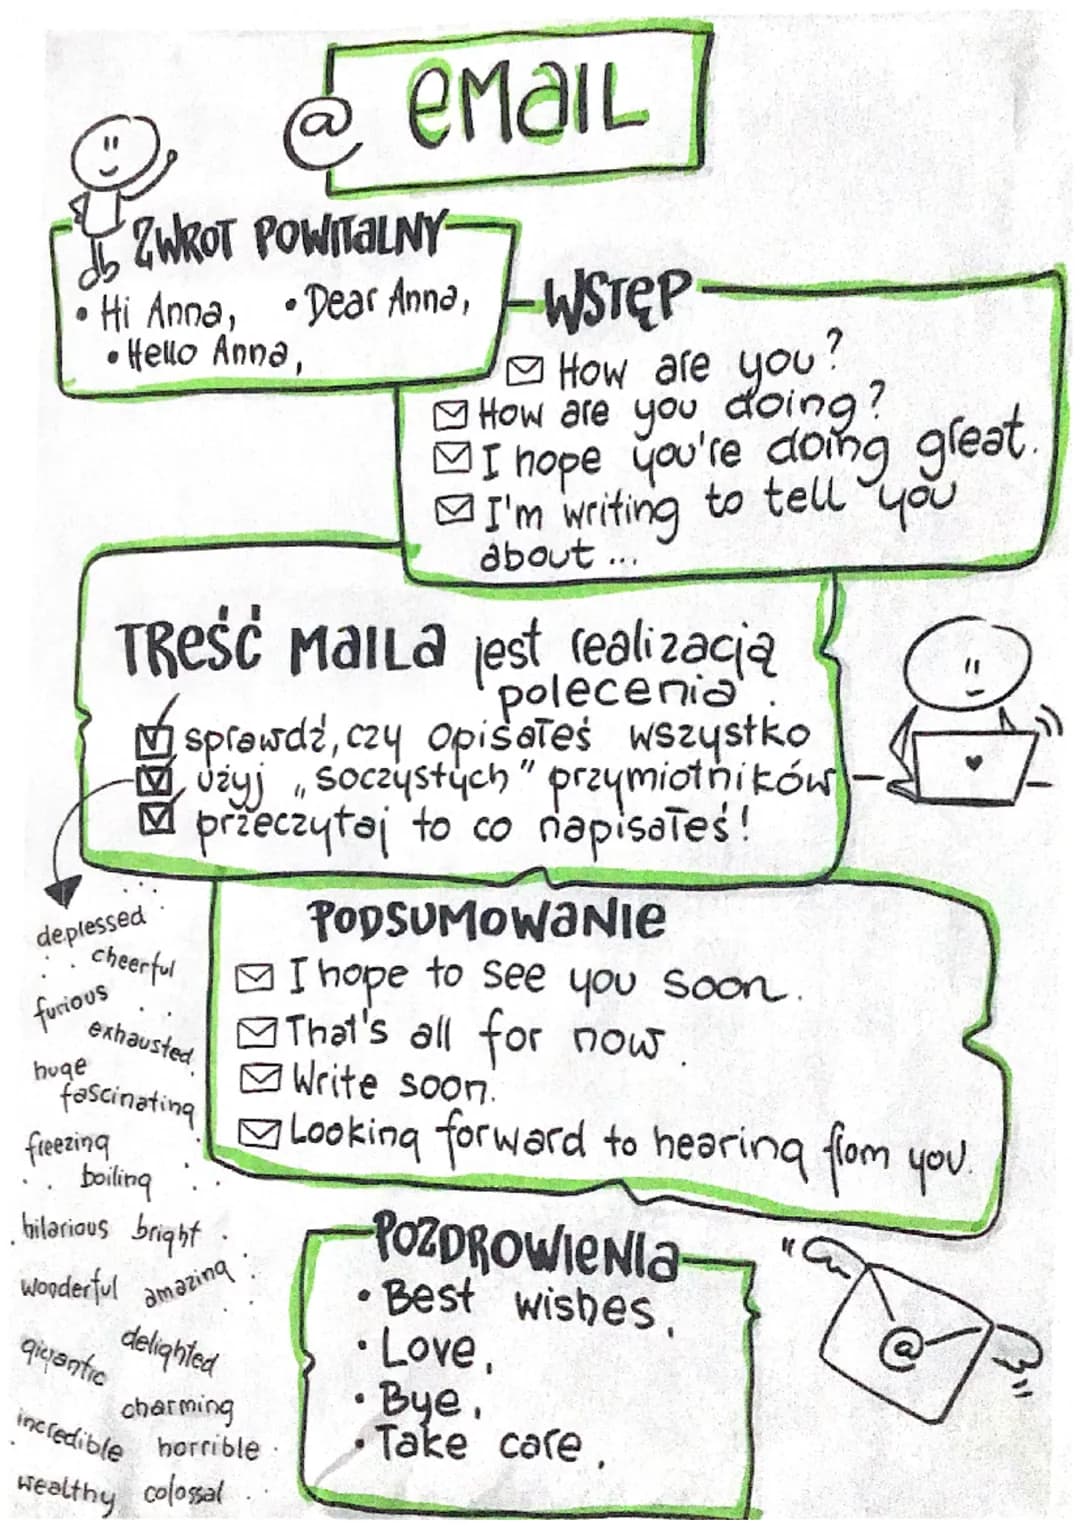 @ EMAIL
ZWROT POWITALNY
• Hi Anna, • Dear Anna,
• Hello Anna,
WSTĘP
How are you?
How are you doing?
I hope you're doing great.
I'm writing to tell you
about...
TREŚĆ MAILA jest realizacją
polecenia.
sprawdź, czy opisałeś wszystko
użyj „soczystych" przymiotników
przeczytaj to co napisałeś!
depressed
cheerful
furious
exhausted
huge
fascinating
freezing
boiling
hilarious bright
wonderful amazing
delighted
gigantic
charming
incredible horrible
wealthy colossal
PODSUMOWANIE
I hope to see you soon.
That's all for now.
Write soon.
Looking forward to hearing from you.
POZDROWIENIA
• Best wishes,
• Love,
• Bye,
• Take care,
@